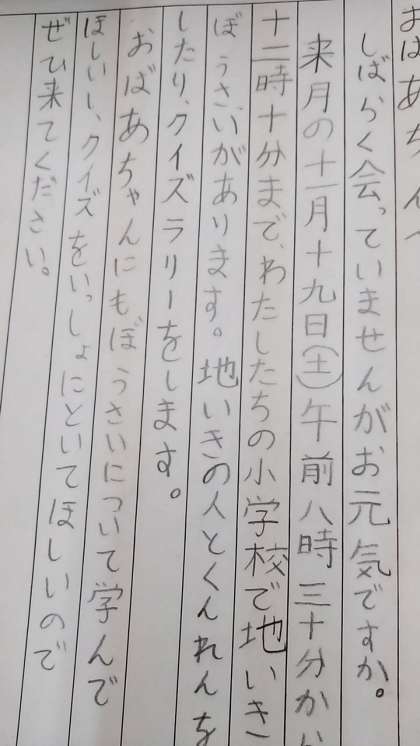 おばあちゃんへ
しばらく会っていませんがお元気ですか。
来月の十一月十九日(土)午前八時三十分から
十二時十分まで、わたしたちの小学校で地いき
ぼうさいがあります。地いきの人とくんれんを
したり、クイズラリーをします。
おばあちゃんにもぼうさいについて学んで
ほしいし、クイズをいっしょにといてほしいので
ぜひ来てください。